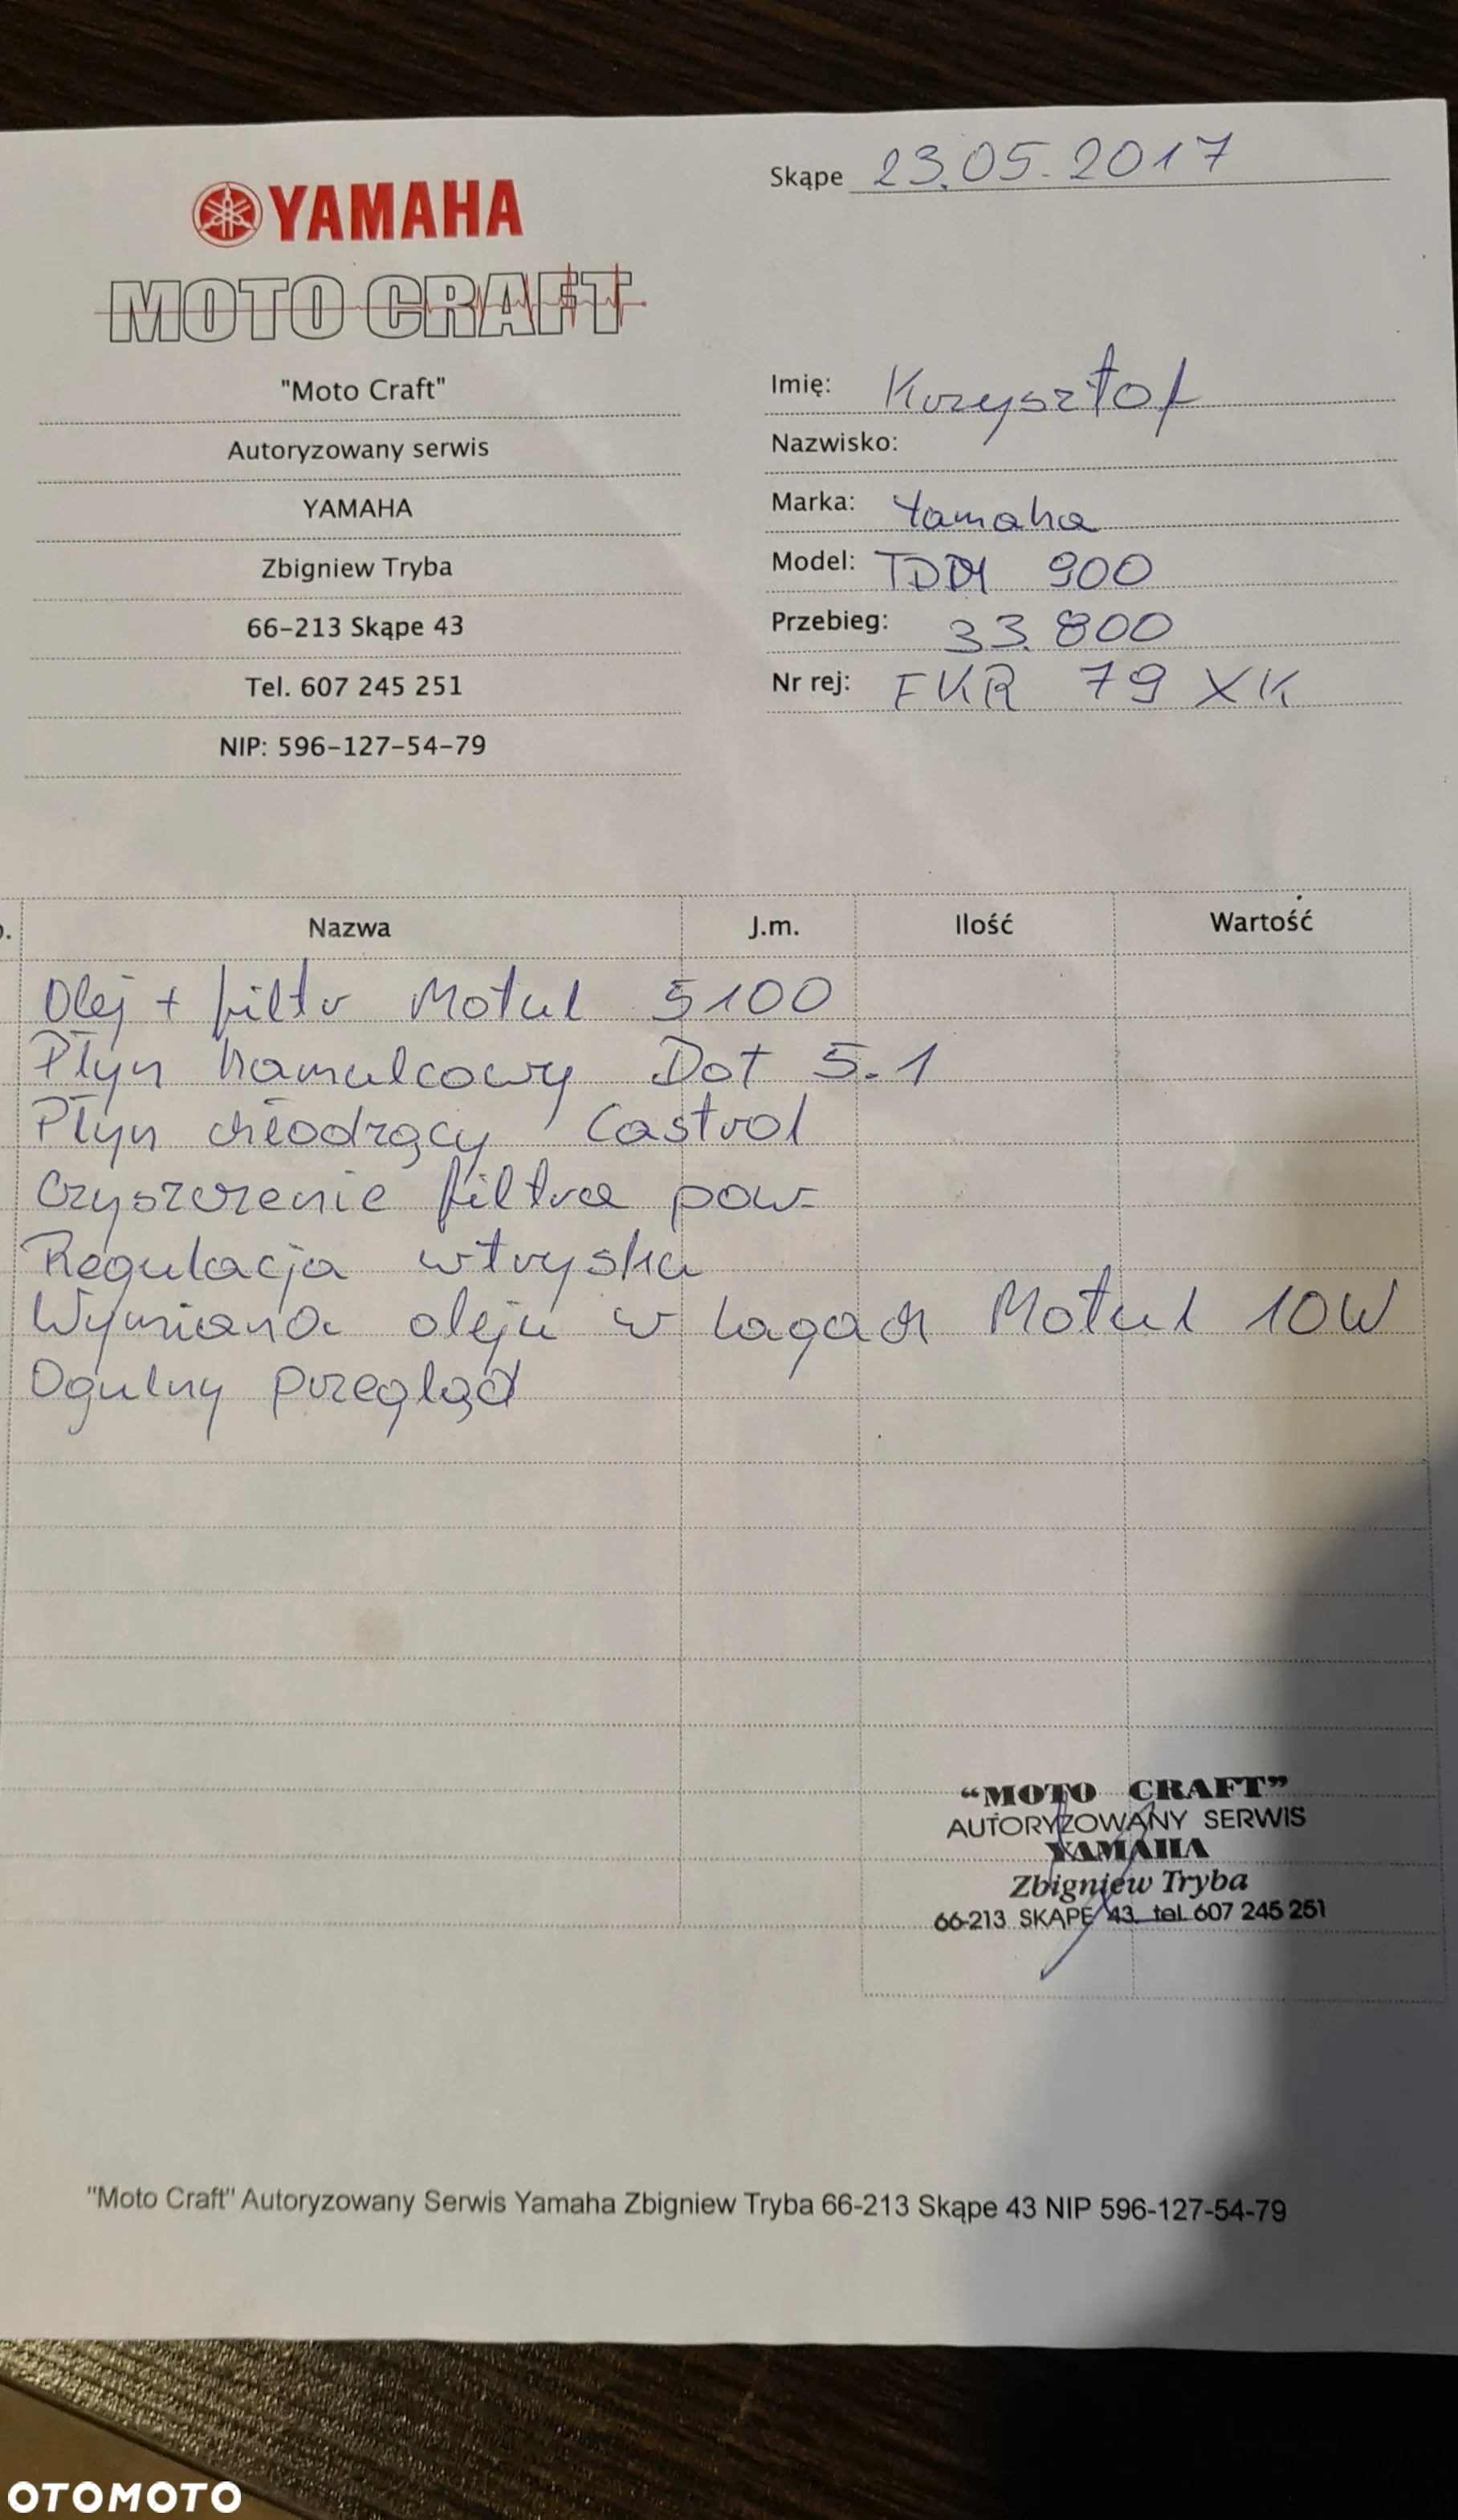 Skąpe 23.05.2017
YAMAHA
MOTO CRAFT
"Moto Craft"
Autoryzowany serwis
YAMAHA
Zbigniew Tryba
66-213 Skąpe 43
Tel. 607 245 251
NIP: 596-127-54-79
Imię: Krzysztof
Nazwisko:
Marka: Yamaha
Model: TDM 900
Przebieg: 33.800
Nr rej: FKR 79 XK
Nazwa J.m. Ilość Wartość
Olej + filtr Motul 5100
Płyn hamulcowy Dot 5.1
Płyn chłodzący Castrol
Czyszczenie filtra pow.
Regulacja wtrysku
Wymiana oleju w lagach Motul 10W
Ogulny przegląd
"MOTO CRAFT"
AUTORYZOWANY SERWIS
YAMAHA
Zbigniew Tryba
66-213 SKĄPE 43, tel. 607 245 251
"Moto Craft" Autoryzowany Serwis Yamaha Zbigniew Tryba 66-213 Skąpe 43 NIP 596-127-54-79
OTOMOTO